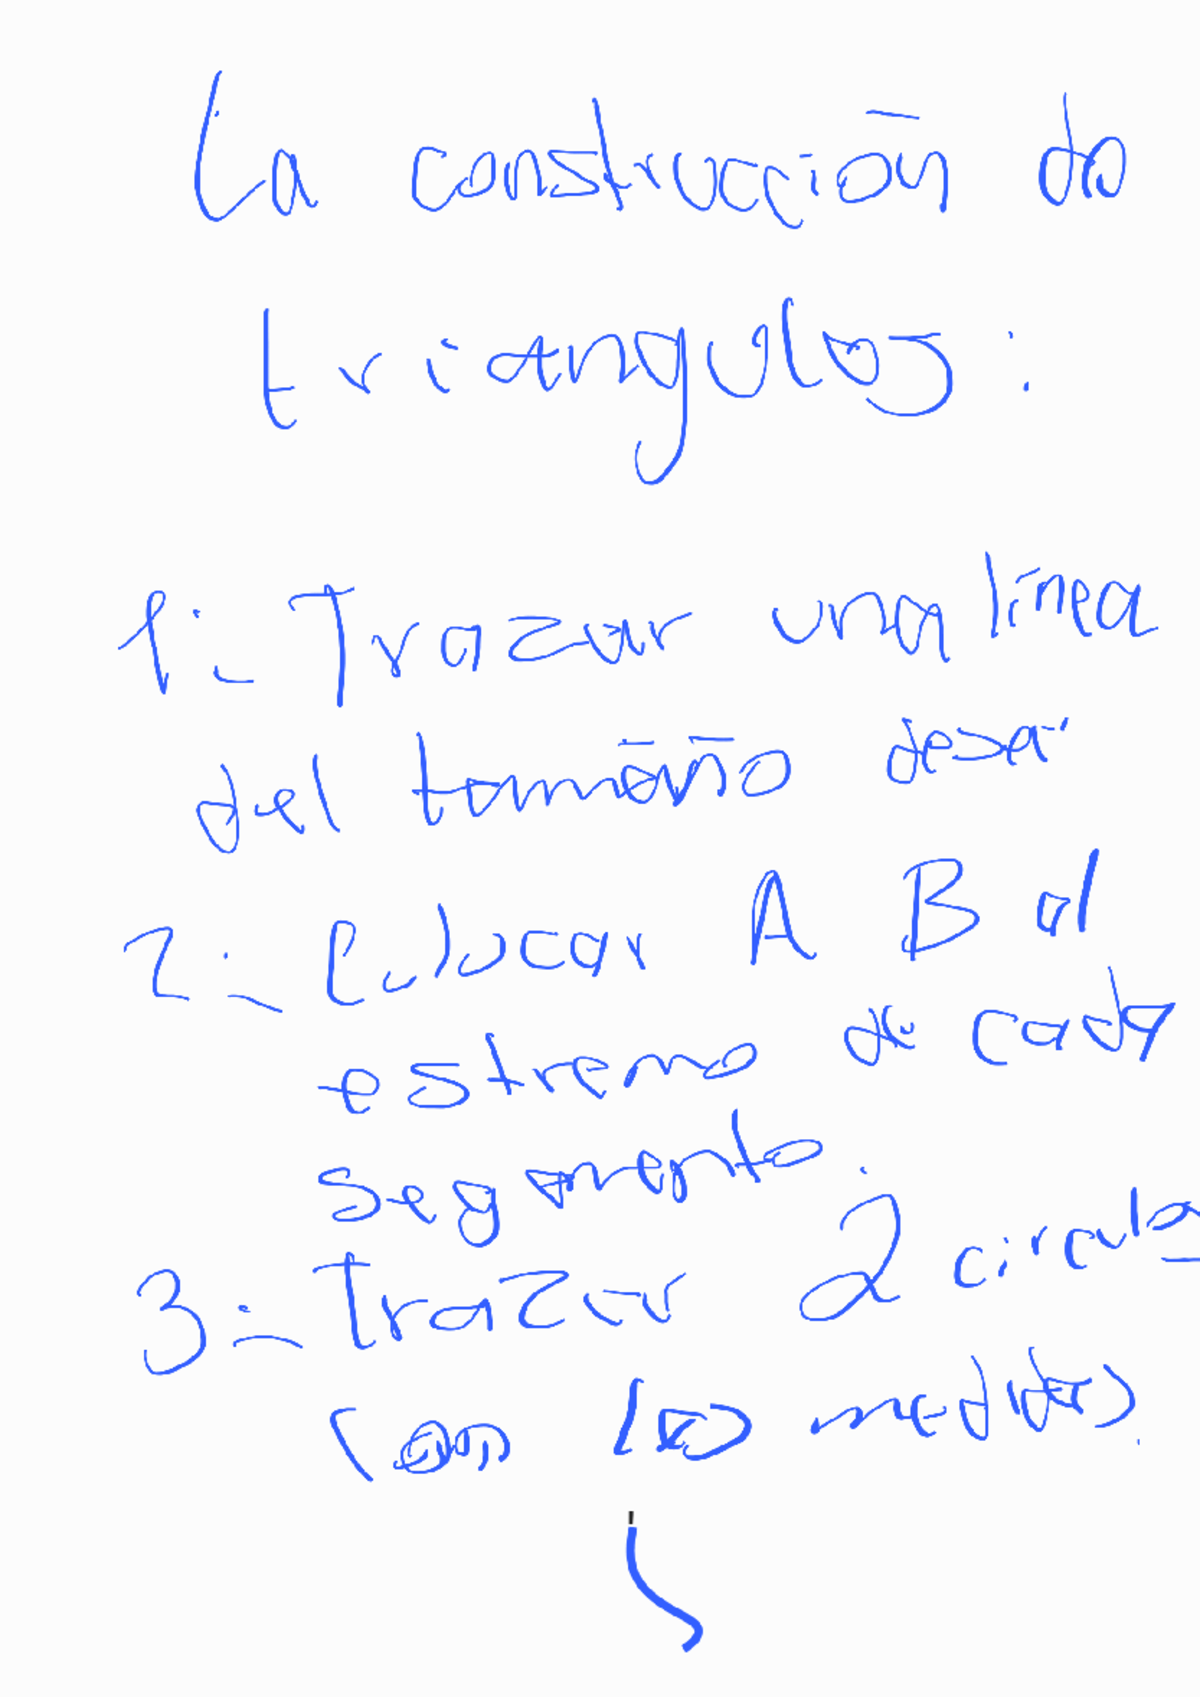 La construcción de
triangulos:
1.- Trazar una línea
del tamaño desa
2.- Colocar A B al
estremo de cada
segmento.
3.- Trazar 2 circulos
con las medidas.